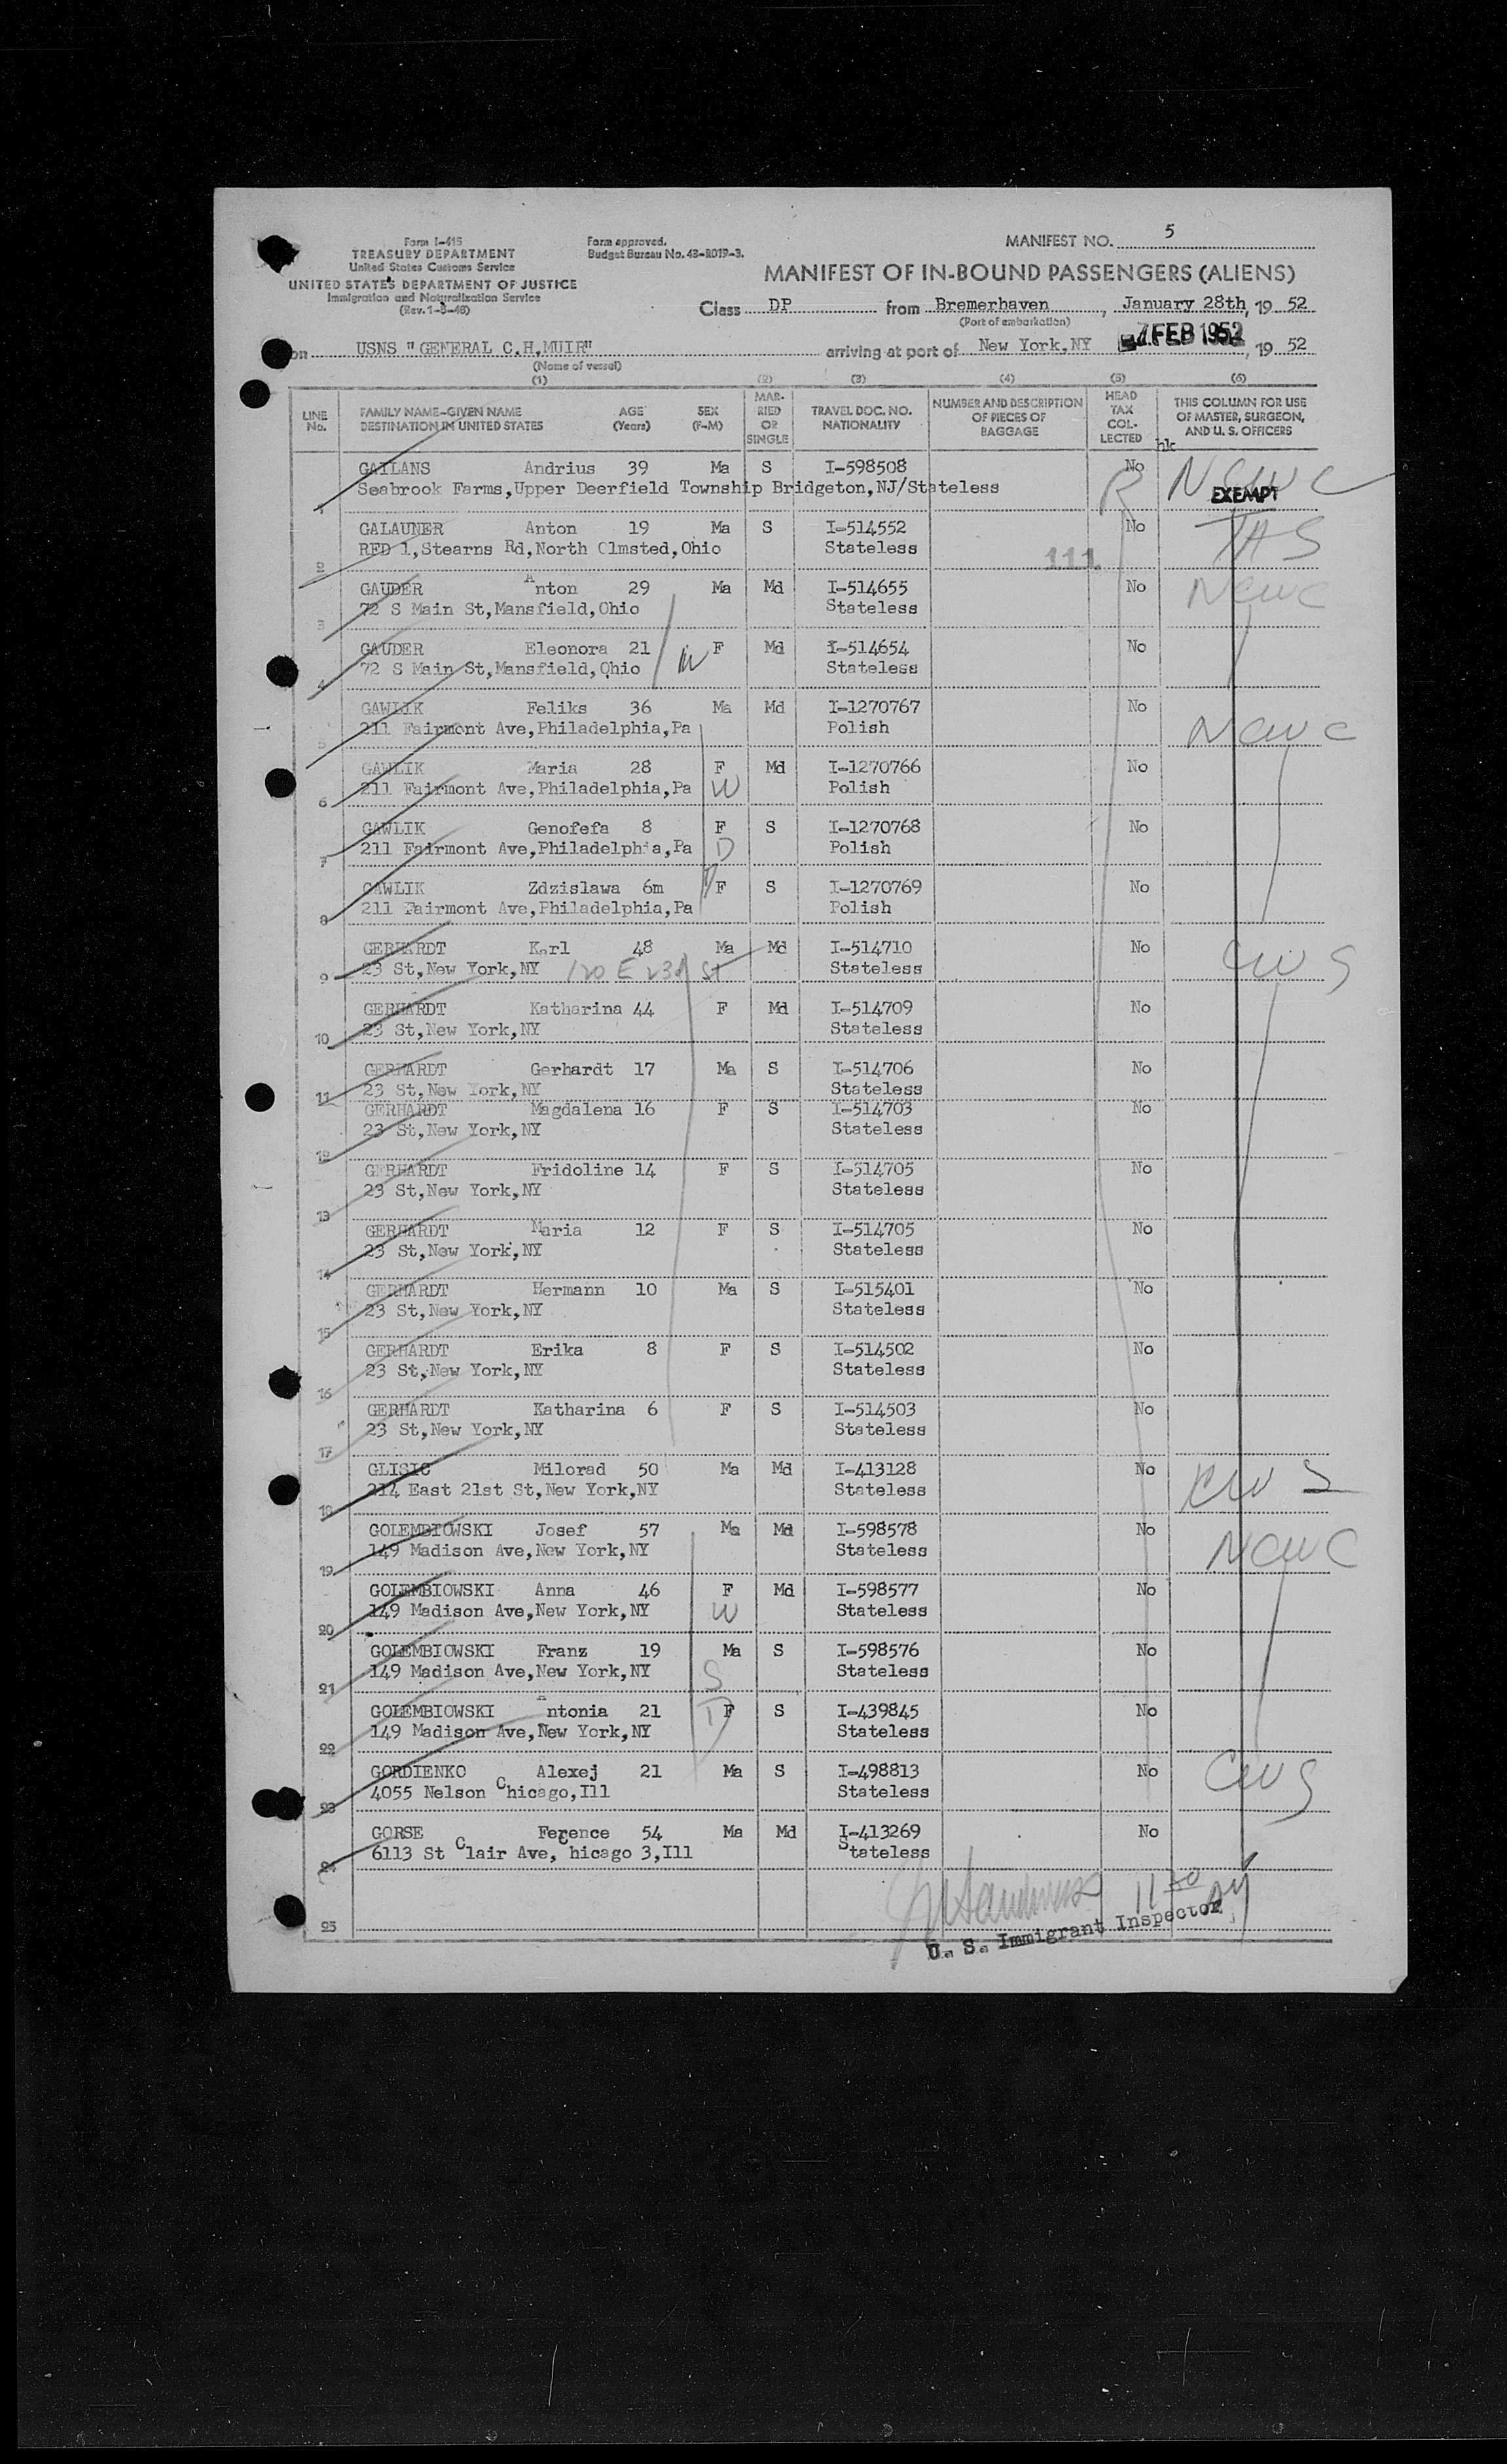 Form I-415
TREASURY DEPARTMENT
United States Customs Service
UNITED STATES DEPARTMENT OF JUSTICE
Immigration and Naturalization Service
(Rev. 1-8-48)
Form approved.
Budget Bureau No. 43-R019-3.
MANIFEST NO. 5
MANIFEST OF IN-BOUND PASSENGERS (ALIENS)
Class DP from Bremerhaven, January 28th, 19 52
(Port of embarkation)
on USNS "GENERAL C.H.MUIR" arriving at port of New York,NY 7 FEB 1952, 19 52
(Name of vessel)
(1) (2) (3) (4) (5) (6)
LINE No. FAMILY NAME-GIVEN NAME DESTINATION IN UNITED STATES AGE (Years) SEX (F-M) MARRIED OR SINGLE TRAVEL DOC. NO. NATIONALITY NUMBER AND DESCRIPTION OF PIECES OF BAGGAGE HEAD TAX COLLECTED THIS COLUMN FOR USE OF MASTER, SURGEON, AND U. S. OFFICERS
hk
GAILANS Andrius 39 Ma S I-598508 No NCWC
1 Seabrook Farms,Upper Deerfield Township Bridgeton,NJ/Stateless EXEMPT
GALAUNER Anton 19 Ma S I-514552 No TAS
2 RFD 1,Stearns Rd,North Olmsted,Ohio Stateless 111
GAUDER Anton 29 Ma Md I-514655 No NCWC
3 72 S Main St,Mansfield,Ohio Stateless
GAUDER Eleonora 21 W F Md I-514654 No
4 72 S Main St,Mansfield,Ohio Stateless
GAWLIK Feliks 36 Ma Md I-1270767 No
5 211 Fairmont Ave,Philadelphia,Pa Polish NCWC
GAWLIK Maria 28 F Md I-1270766 No
6 211 Fairmont Ave,Philadelphia,Pa W Polish
GAWLIK Genofefa 8 F S I-1270768 No
7 211 Fairmont Ave,Philadelphia,Pa D Polish
GAWLIK Zdzislawa 6m D F S I-1270769 No
8 211 Fairmont Ave,Philadelphia,Pa Polish
GERHARDT Karl 48 Ma Md I-514710 No CWS
9 23 St,New York,NY 120 E 23d St Stateless
GERHARDT Katharina 44 F Md I-514709 No
10 23 St,New York,NY Stateless
GERHARDT Gerhardt 17 Ma S I-514706 No
11 23 St,New York,NY Stateless
GERHARDT Magdalena 16 F S I-514703 No
12 23 St,New York,NY Stateless
GERHARDT Fridoline 14 F S I-514705 No
13 23 St,New York,NY Stateless
GERHARDT Maria 12 F S I-514705 No
14 23 St,New York,NY Stateless
GERHARDT Hermann 10 Ma S I-515401 No
15 23 St,New York,NY Stateless
GERHARDT Erika 8 F S I-514502 No
16 23 St,New York,NY Stateless
GERHARDT Katharina 6 F S I-514503 No
17 23 St,New York,NY Stateless
GLISIC Milorad 50 Ma Md I-413128 No CWS
18 214 East 21st St,New York,NY Stateless
GOLEMBIOWSKI Josef 57 Ma Md I-598578 No NCWC
19 149 Madison Ave,New York,NY Stateless
GOLEMBIOWSKI Anna 46 F Md I-598577 No
20 149 Madison Ave,New York,NY W Stateless
GOLEMBIOWSKI Franz 19 Ma S I-598576 No
21 149 Madison Ave,New York,NY S Stateless
GOLEMBIOWSKI Antonia 21 D F S I-439845 No
22 149 Madison Ave,New York,NY Stateless
GORDIENKO Alexej 21 Ma S I-498813 No CWS
23 4055 Nelson Chicago,Ill Stateless
GORSE Ference 54 Ma Md I-413269 No
24 6113 St Clair Ave, Chicago 3,Ill Stateless
11 30 AM
25
U. S. Immigrant Inspector